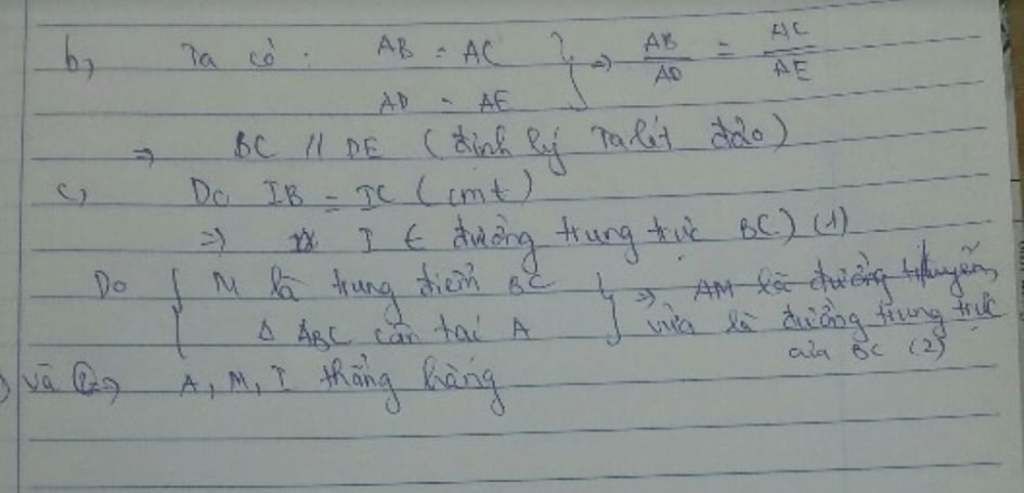 b, Ta có : AB = AC } => AB/AD = AC/AE
AD = AE
=> BC // DE (định lý Ta lét đảo)
c, Do IB = IC (cmt)
=> I ∈ đường trung trực BC) (1)
Do { M là trung điểm BC } => AM là đường tuyến,
Δ ABC cân tại A vừa là đường trung trực
của BC (2)
và (2) => A, M, I thẳng hàng